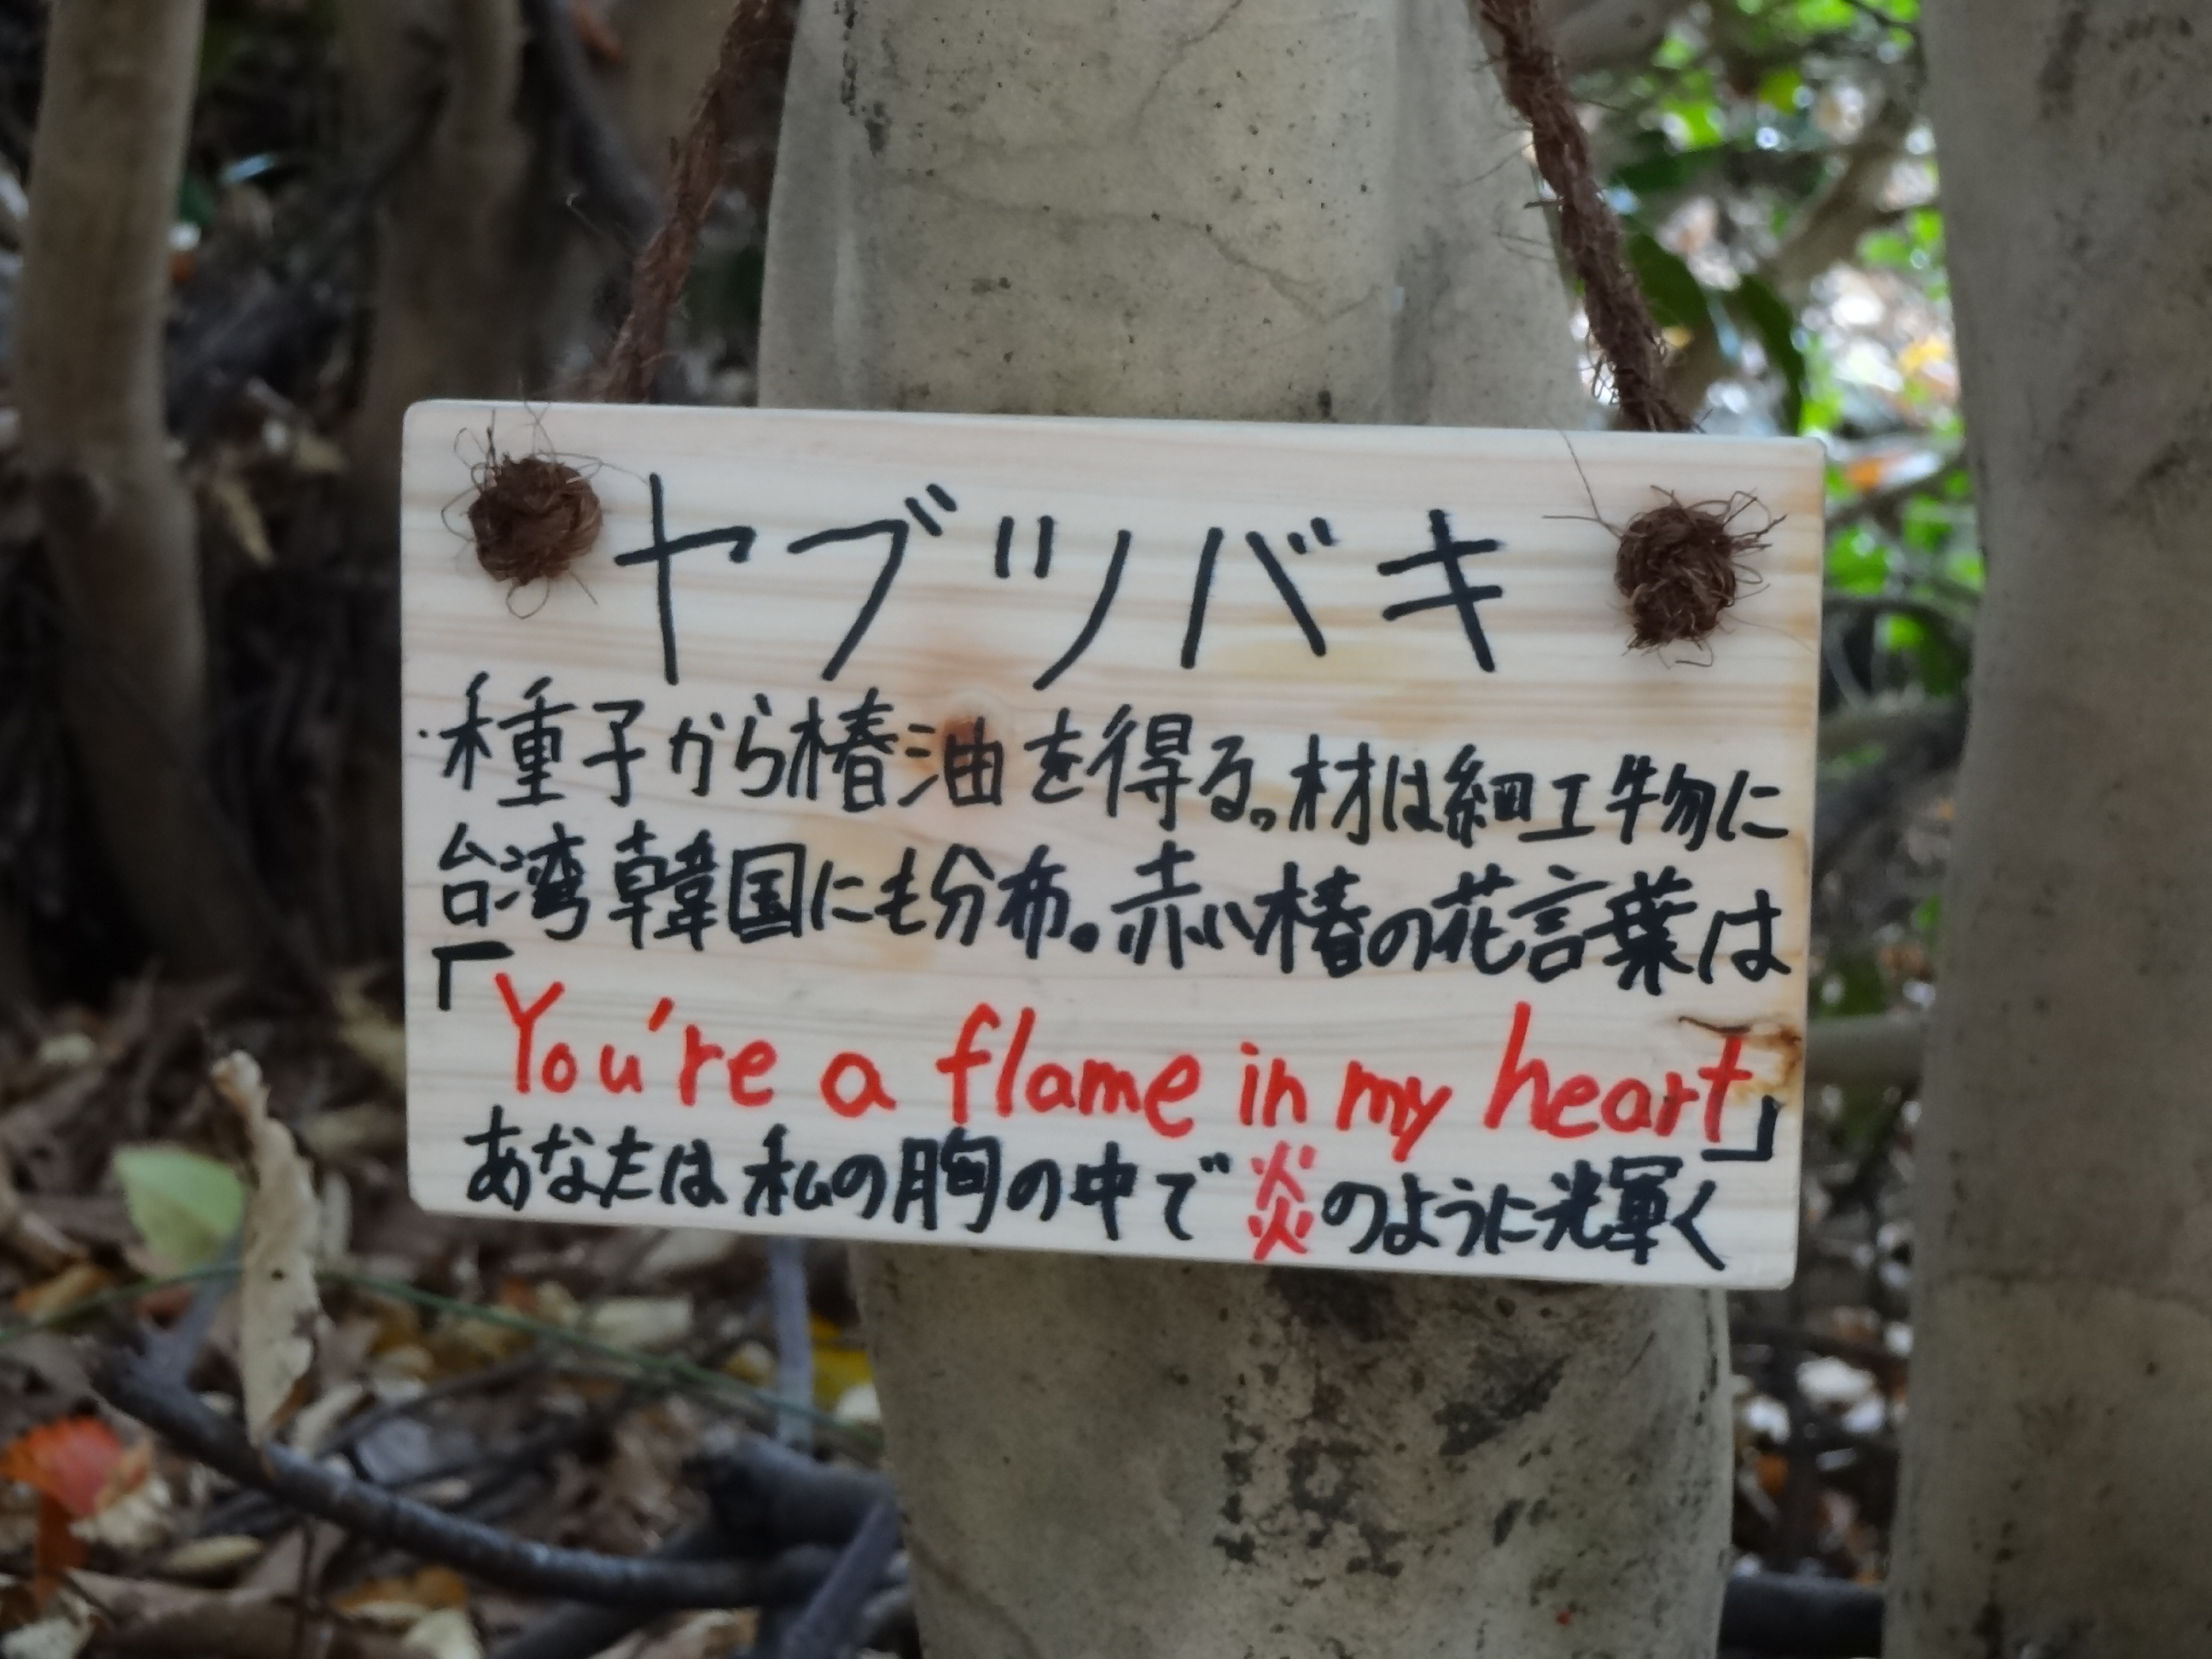 ヤブツバキ
・種子から椿油を得る。材は細工物に
台湾韓国にも分布。赤い椿の花言葉は
「You're a flame in my heart」
あなたは私の胸の中で炎のように光輝く